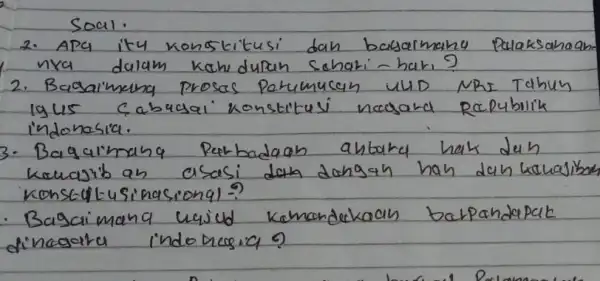 Soal.
2. Apa itu konstitusi dan bagaimana Palaksanaan
nya dalam kehidupan Sehari-hari?
2. Bagaimana proses Parumusan UUD NRI Tahun
1945 Sabagai konstitusi nagara Rapublik
indonasia.
3. Bagaimana Parbadaan antara hak dan
kewajiban asasi dan dangan hak dan kewajiban
konstitusinasional?
. Bagaimana wujud kamardakaan barpandapat
dinagara indonasia?